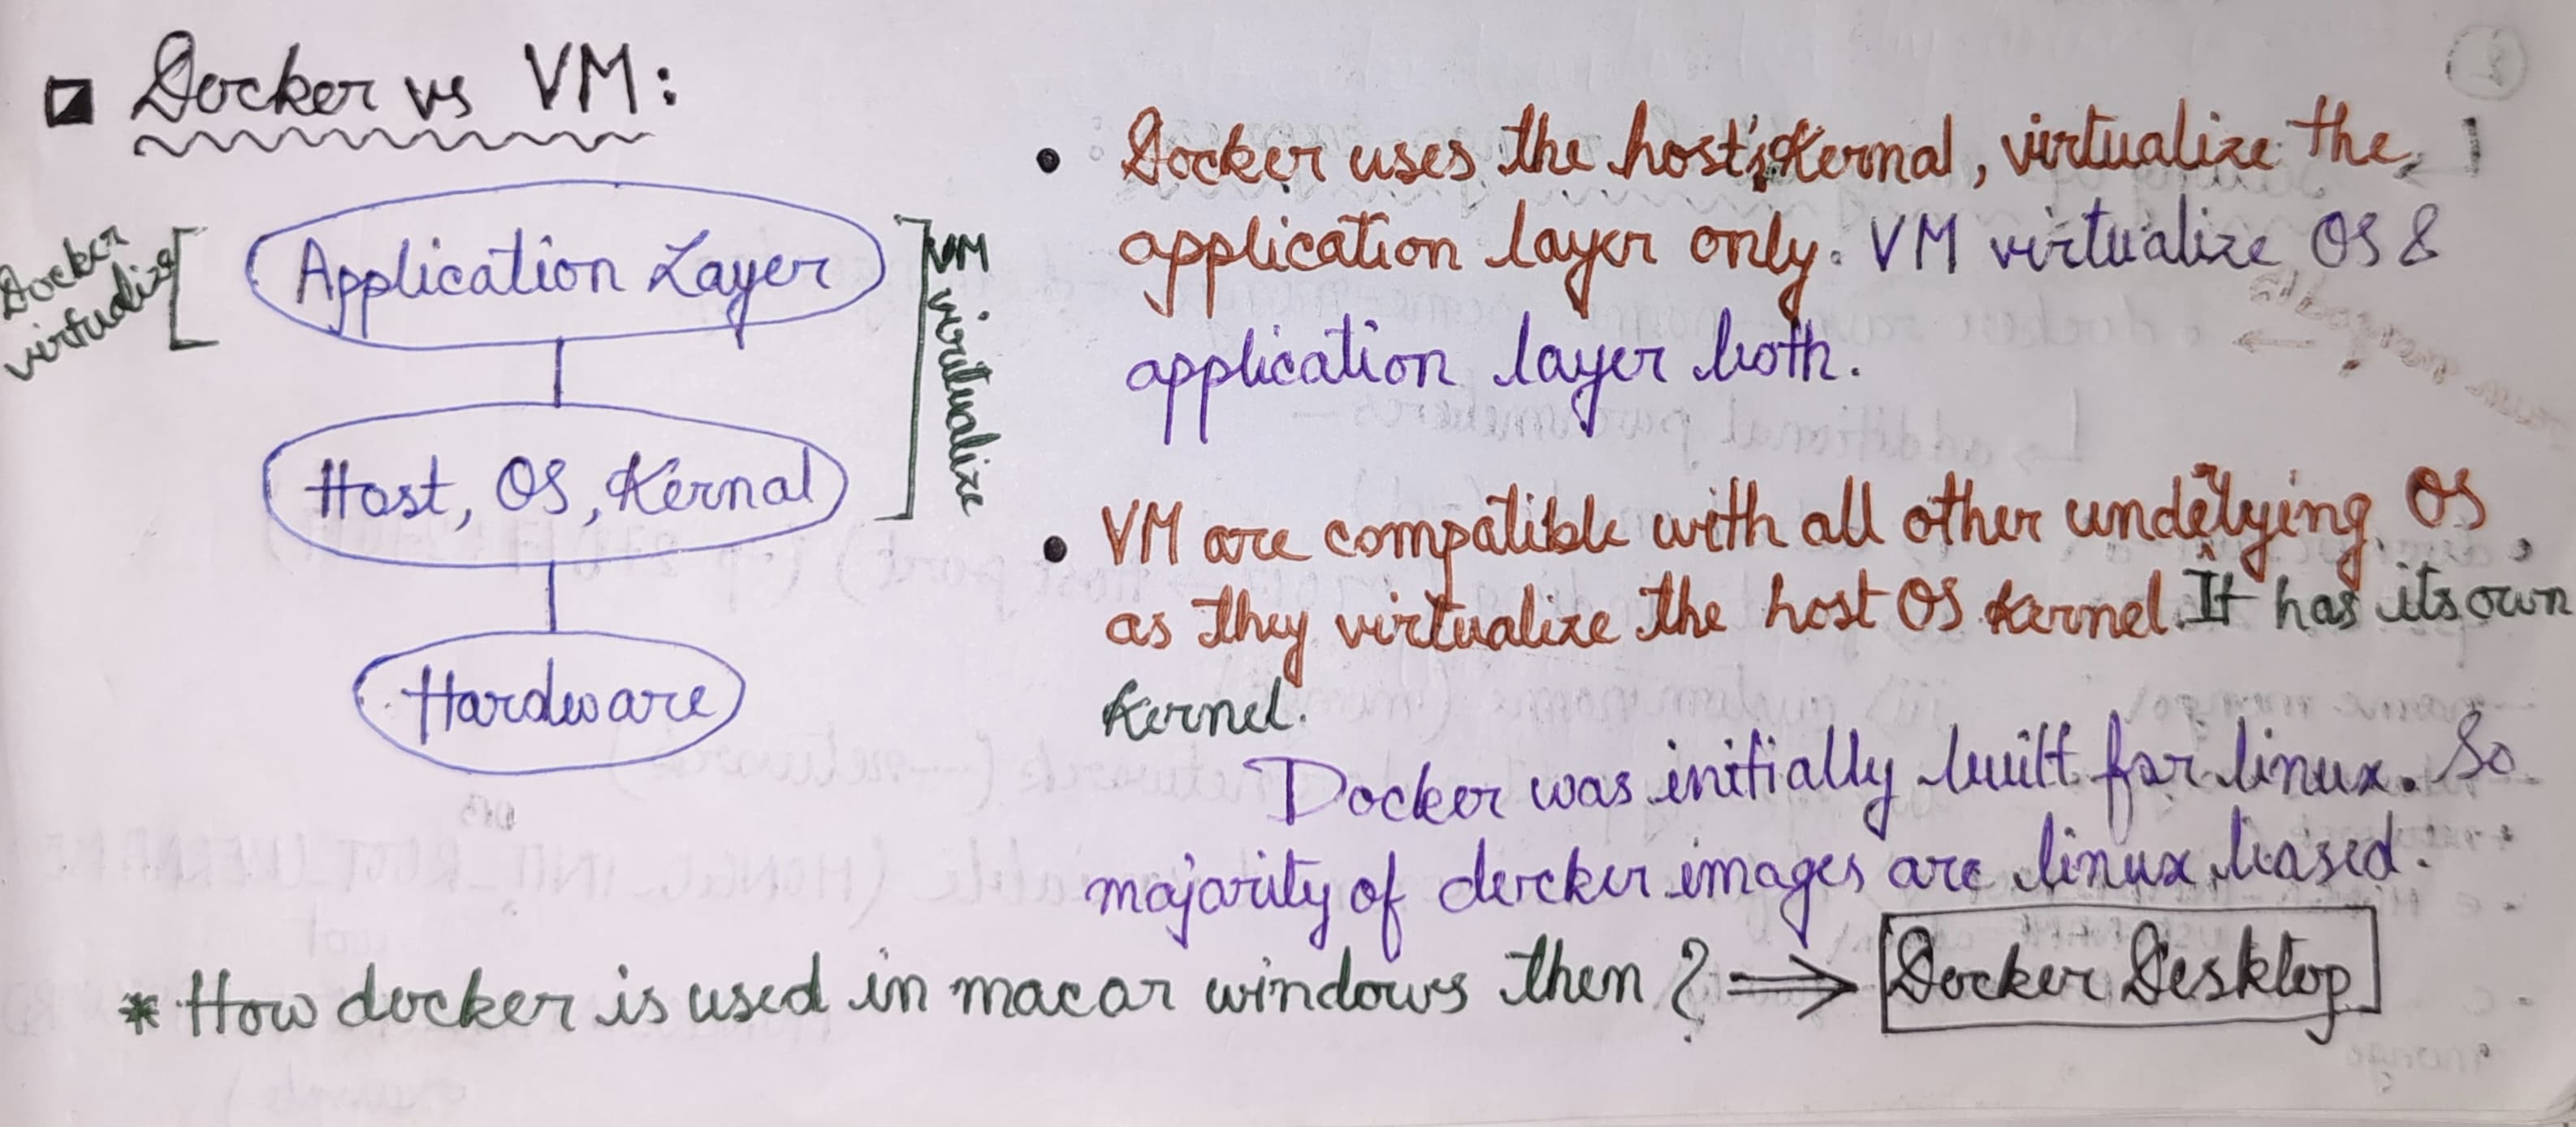 Docker vs VM:
Docker
virtualize
Application Layer
VM virtualize
Host, OS, Kernal
Hardware
• Docker uses the host's Kernal, virtualize the
application layer only. VM virtualize OS &
application layer both.
• VM are compatible with all other underlying OS,
as they virtualize the host OS Kernel. It has its own
Kernel.
Docker was initially built for linux. So
majority of docker images are linux based.
* How docker is used in mac or windows then ? ⇒ Docker Desktop